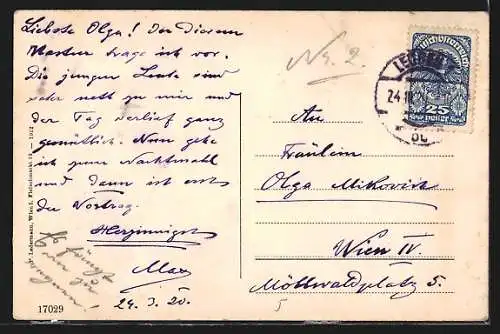 Liebste Olga! Vor diesem
trage ich vor.
Die jungen Leute sind
sehr nett zu mir und
der Tag verlief ganz
gemütlich. Nun gehe
ich zum Nachtmahl
und dann ist erst
der Vortrag.
Herzinnigst
Max
24. 3. 20.
17029
Nr. 2.
LEOBEN
24
Deutschösterreich
25
Heller
An
Fräulein
Olga
Wien IV.
Mollwaldplatz 5.
5